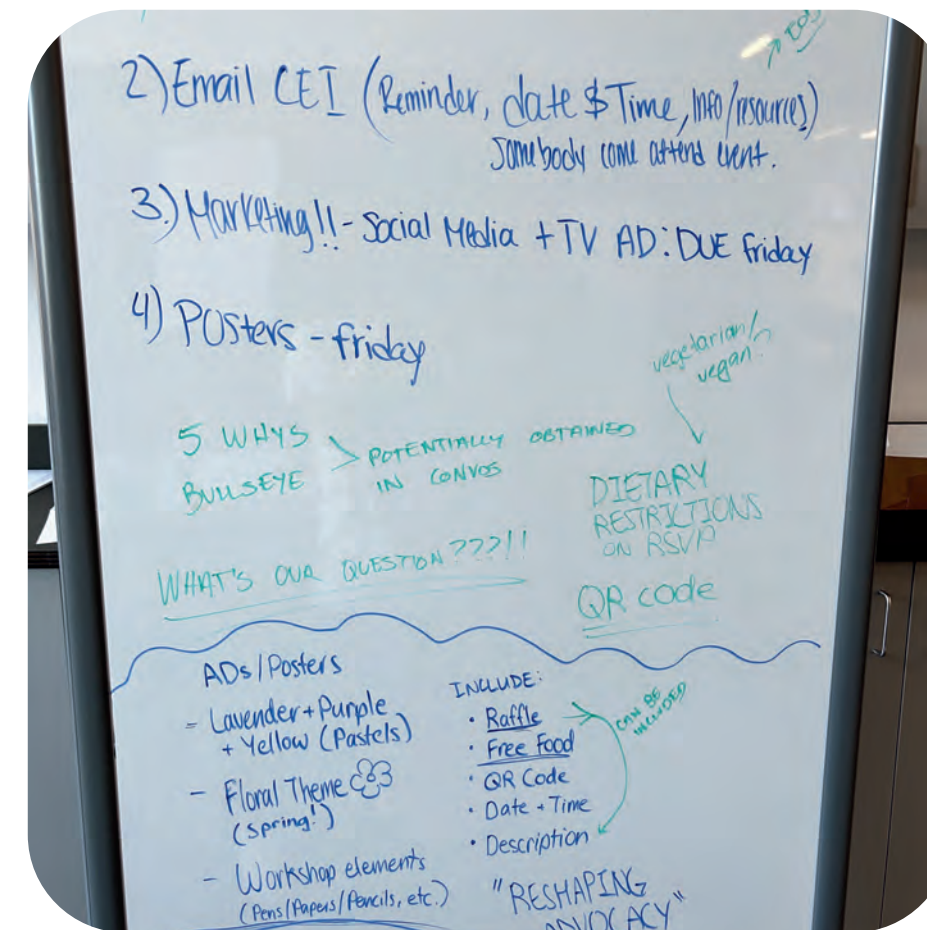 2) Email CEI (Reminder, date & Time, Info/resources)
Somebody come attend event.
3.) Marketing!! - Social Media + TV AD: DUE friday
4) Posters - friday
vegetarian/
vegan
5 WHYS
BULLSEYE
> POTENTIALLY OBTAINED
IN CONVOS
DIETARY
RESTRICTIONS
ON RSVP
WHAT'S OUR QUESTION???!!
QR code
ADs/Posters
- Lavender + Purple
+ Yellow (Pastels)
- Floral Theme
(Spring!)
- Workshop elements
(Pens/Papers/Pencils, etc.)
INCLUDE:
• Raffle
• Free Food
• QR Code
• Date + Time
• Description
CAN BE
INCLUDED
"RESHAPING
ADVOCACY"